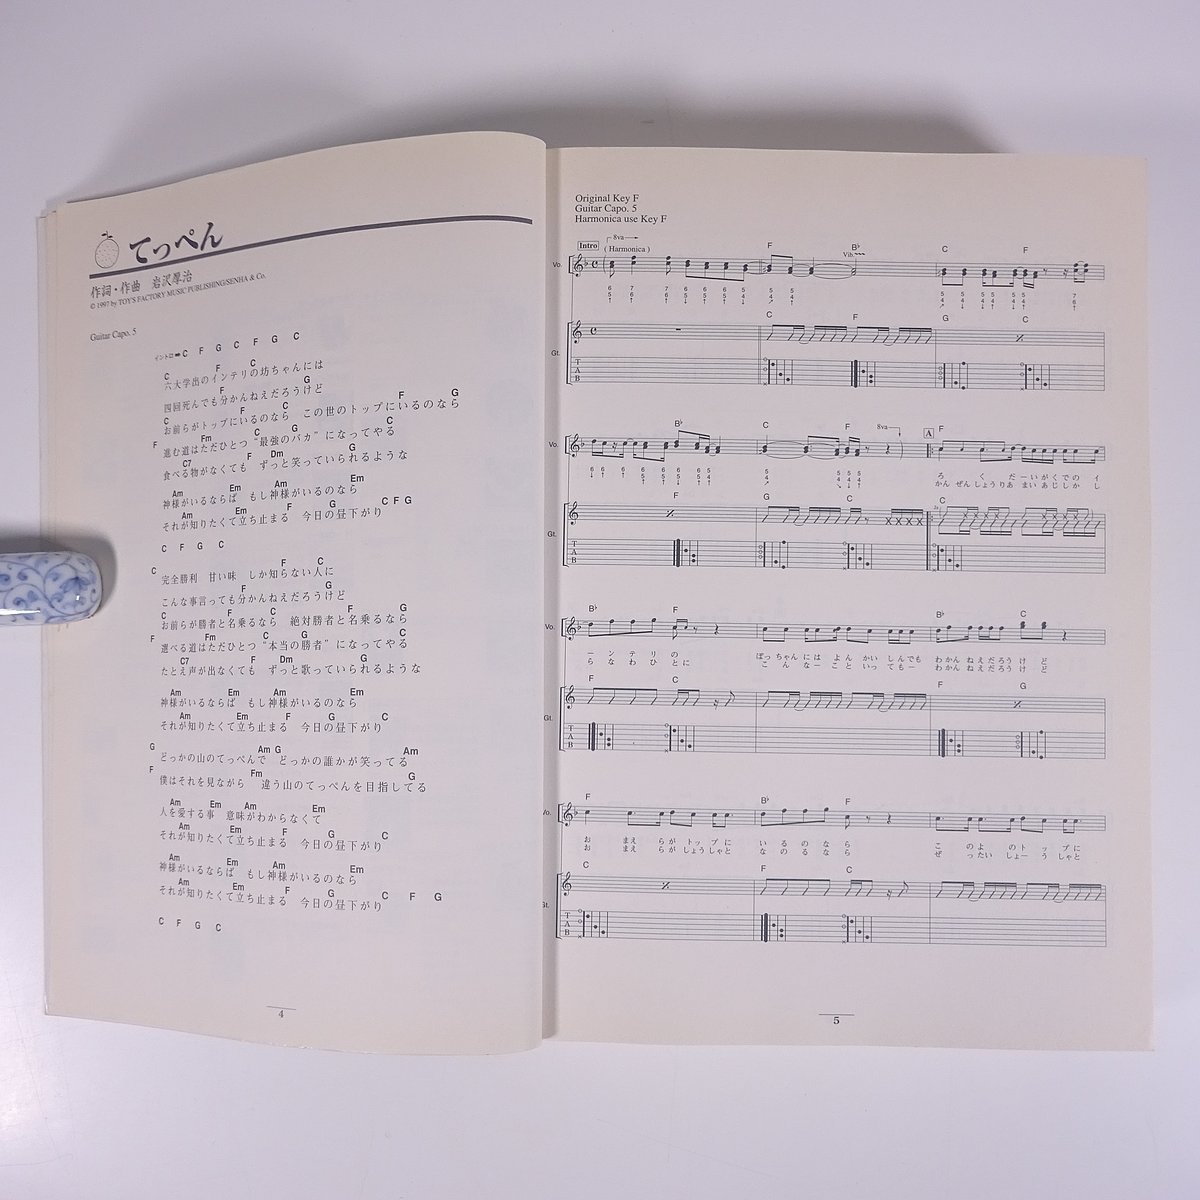 てっぺん
作詞・作曲　岩沢厚治
© 1997 by TOY'S FACTORY MUSIC PUBLISHING/SENHA & Co.
Guitar Capo. 5
イントロ➡C F G C F G C
C F C
六大学出のインテリの坊ちゃんには
F G
四回死んでも分かんねえだろうけど
C F C F G
お前らがトップにいるのなら　この世のトップにいるのなら
F Fm C G C
進む道はただひとつ“最強のバカ”になってやる
C7 F Dm G
食べる物がなくても　ずっと笑っていられるような
Am Em Am Em
神様がいるならば　もし神様がいるのなら
Am Em F G C F G
それが知りたくて立ち止まる　今日の昼下がり
C F G C
C F C
完全勝利　甘い味　しか知らない人に
F G
こんな事言っても分かんねえだろうけど
C F C F G
お前らが勝者と名乗るなら　絶対勝者と名乗るなら
F Fm C G C
選べる道はただひとつ“本当の勝者”になってやる
C7 F Dm G
たとえ声が出なくても　ずっと歌っていられるような
Am Em Am Em
神様がいるならば　もし神様がいるのなら
Am Em F G C
それが知りたくて立ち止まる　今日の昼下がり
G Am G Am
どっかの山のてっぺんで　どっかの誰かが笑ってる
F Fm G
僕はそれを見ながら　違う山のてっぺんを目指してる
Am Em Am Em
人を愛する事　意味がわからなくて
Am Em F G C
それが知りたくて立ち止まる　今日の昼下がり
Am Em Am Em
神様がいるならば　もし神様がいるのなら
Am Em F G C F G
それが知りたくて立ち止まる　今日の昼下がり
C F G C
4
Original Key F
Guitar Capo. 5
Harmonica use Key F
Intro (Harmonica) 8va
F B♭ Vib. C F
Vo.
C F G C
Gt.
TAB
B♭ C F 8va A F
Vo.
ろ く だーいがくでの イ
かん ぜんしょうりあ まいあじしか し
F G C C
Gt.
TAB
B♭ F B♭ C
Vo.
ーンテリの ぼっちゃんには よん かいしんでも わかんねえだろうけ ど
らなわひとに こんなーこといってもー わかんねえだろうけ ど
F C F G
Gt.
TAB
F B♭ F
Vo.
お まえ らが トップに いるのなら このよ のトップに
お まえ らがしょうしゃと なのるなら ぜったいしょーうしゃと
C F C
Gt.
TAB
5